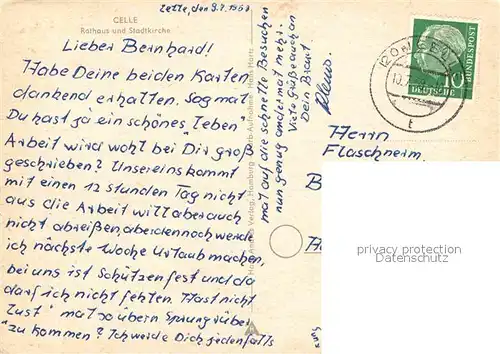 CELLE
Rathaus und Stadtkirche
Celle, den 9.7.
Lieber Bernhard!
Habe Deine beiden Karten
dankend erhalten. Sag mal
Du hast ja ein schönes "Leben"
Arbeit wird wohl bei Dir groß
geschrieben? Unsereins kommt
mit einen 12 stunden Tag nicht
aus die Arbeit will aber auch
nicht abreißen, aber dennoch werde
ich nächste Woche Urlaub machen,
bei uns ist Schützenfest und da
darf ich nicht fehlen. Hast nicht
"Lust" mal so übern Sprung rüber
zu kommen? Ich werde Dich jedenfalls
mal auf die schnelle Besuchen
nun genug andermal mehr.
Viele Grüße auch an
Dein Braut
Herrn
Flaschnerm.
DEUTSCHE
BUNDESPOST
10
privacy protection
Datenschutz